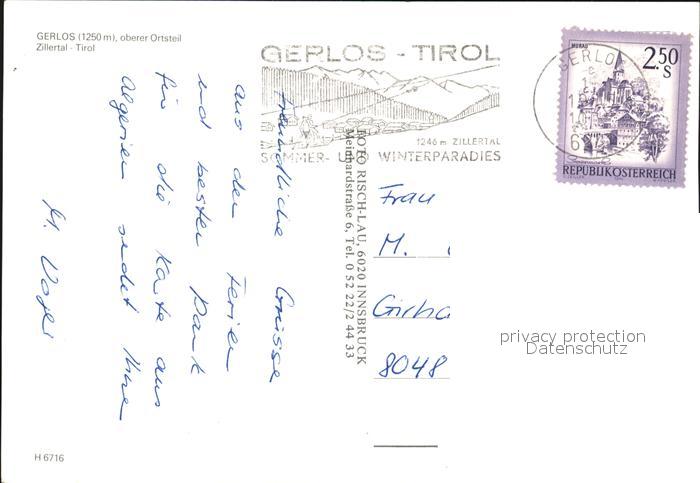 GERLOS (1250 m), oberer Ortsteil
Zillertal - Tirol
GERLOS - TIROL
1246 m ZILLERTAL
SOMMER- UND WINTERPARADIES
GERLOS
MURAU
2.50
S
REPUBLIK ÖSTERREICH
Freundliche Grüsse
aus den Ferien
und besten Dank
für die Karte aus
Algerien sendet Ihnen
M.
FOTO RISCH-LAU, 6020 INNSBRUCK
Meinhardstraße 6, Tel. 0 52 22/2 44 33
Frau
M.
8048
privacy protection
Datenschutz
H 6716